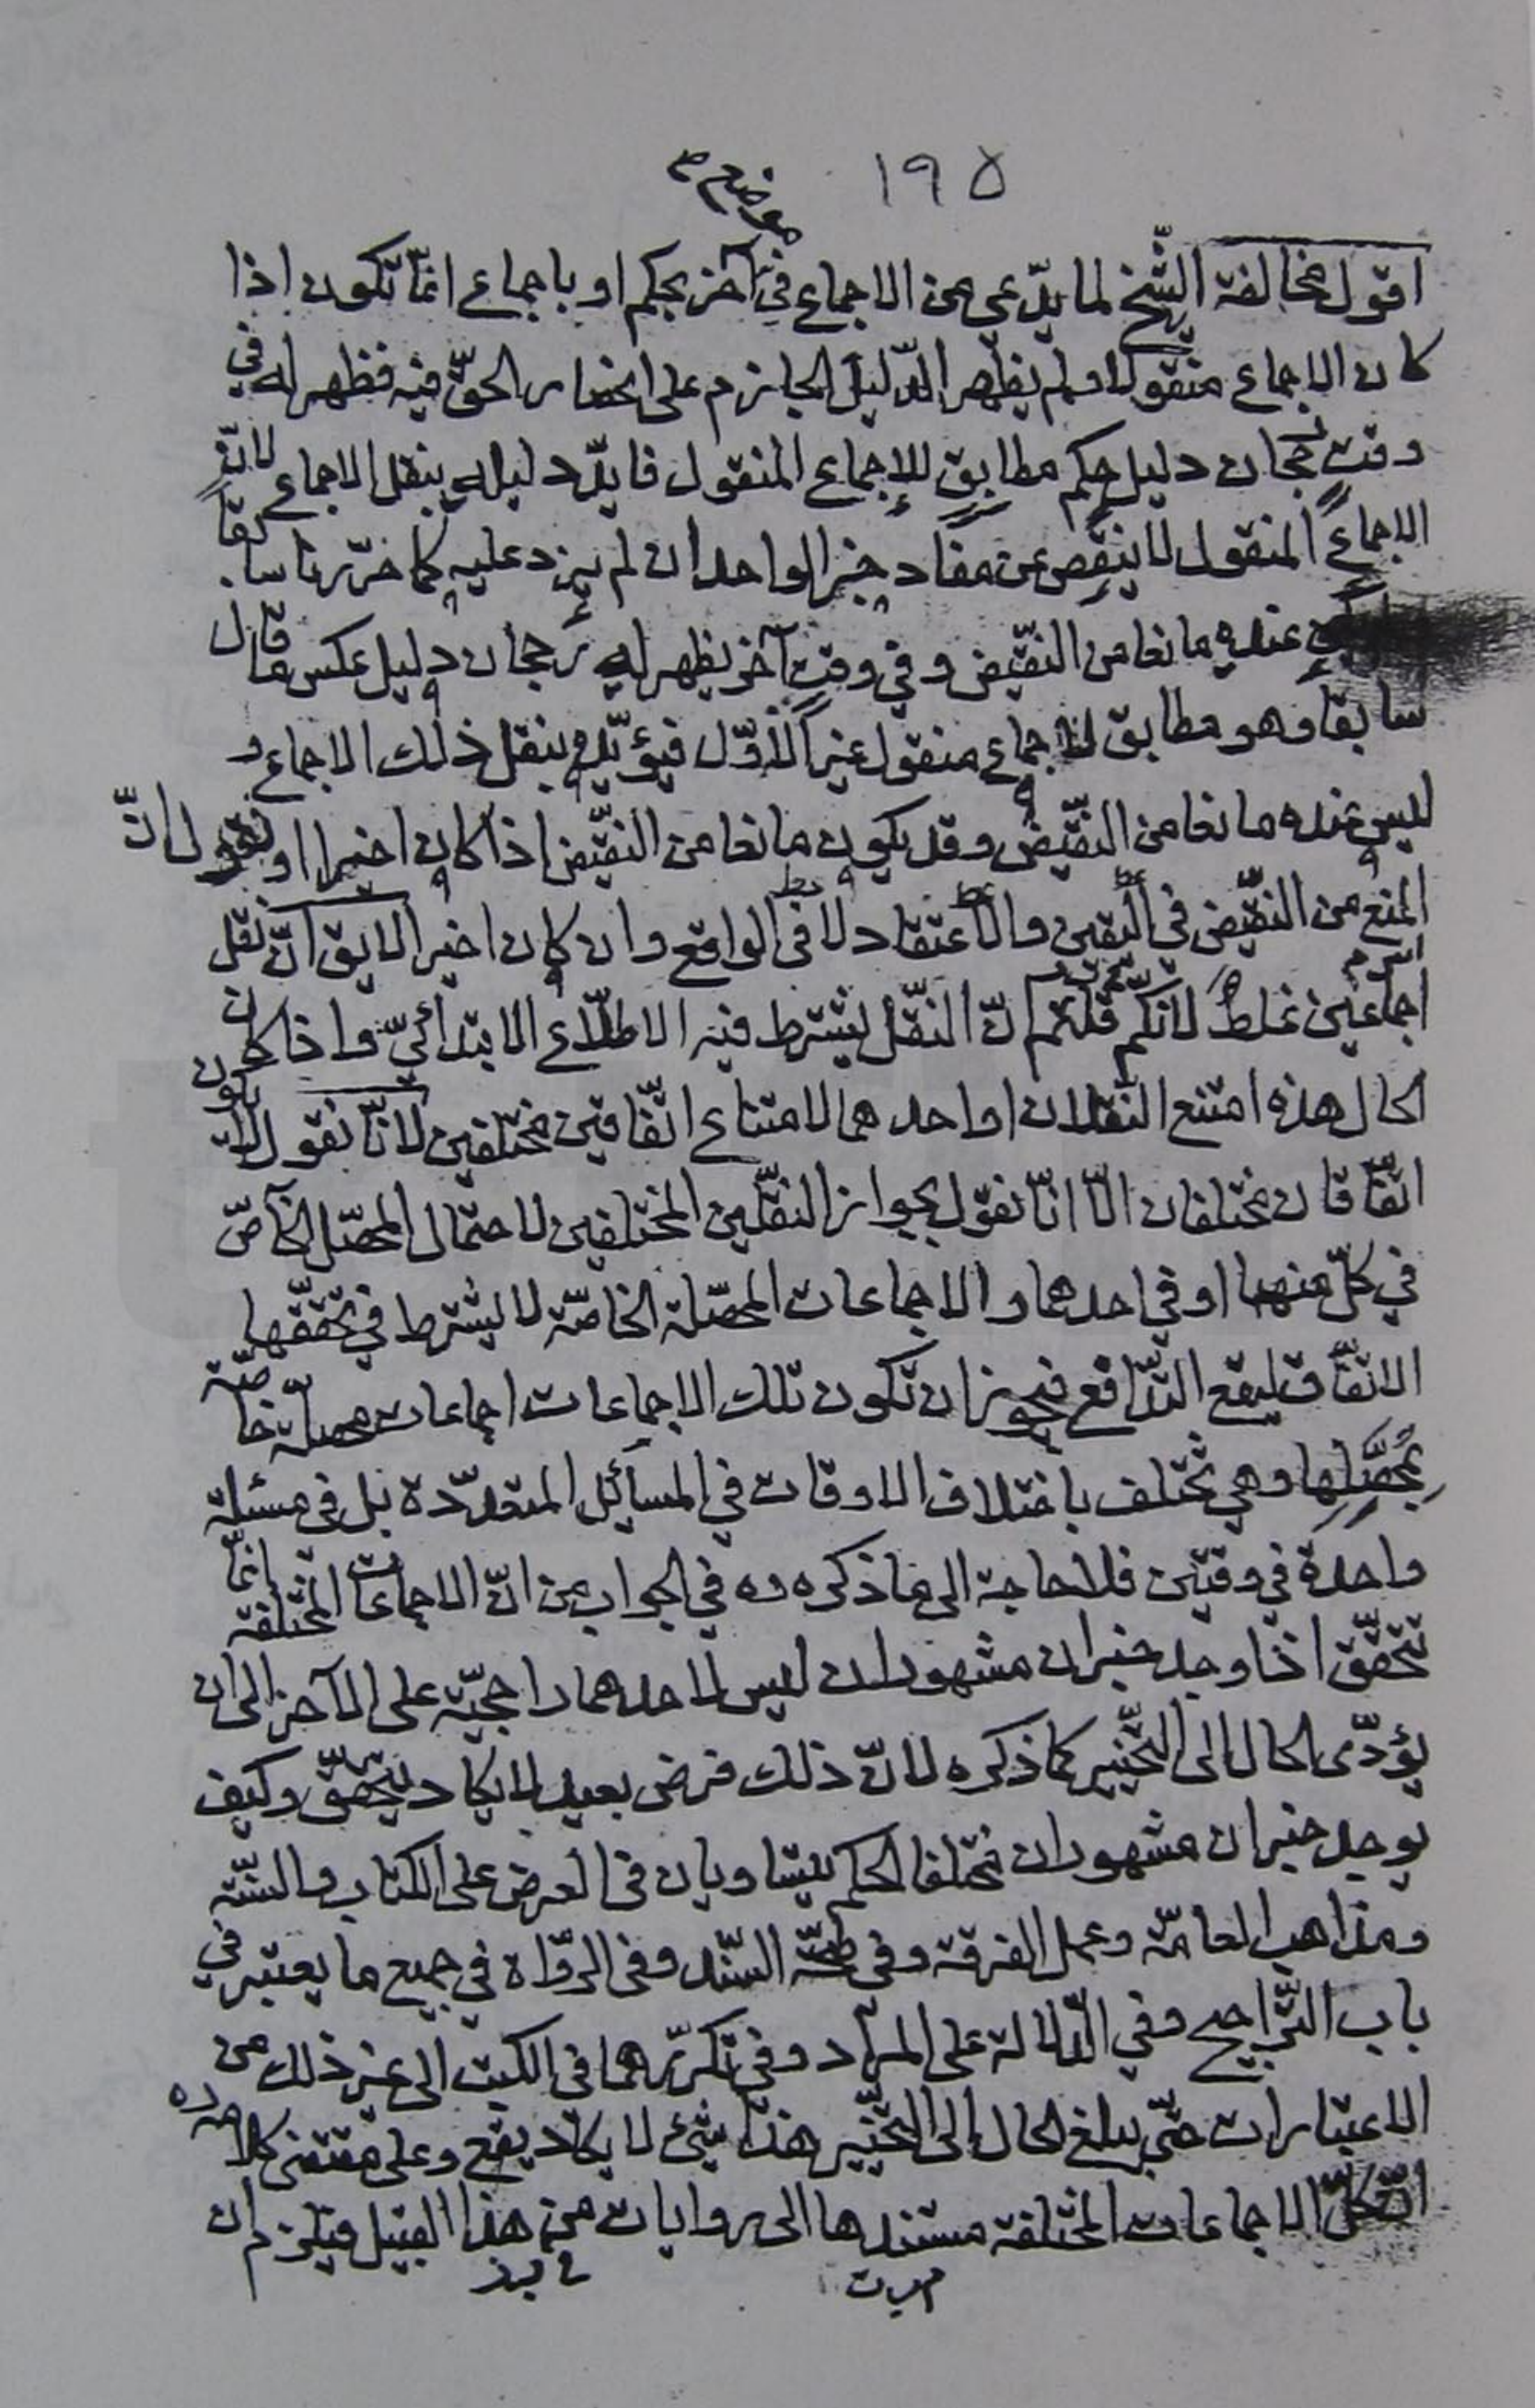 ١٩٥
اقول مخالفة الشيخ لما يدّعي من الاجماع في آخر بحكم او باجماع انّما تكون اذا
كان الاجماع منقولا ولم يظهر الدّليل الجازم على انحصار الحقّ فيه فظهر له في
وقت رجحان دليل حكم مطابق للاجماع المنقول فايّد دليله بنقل الاجماع لانّ
الاجماع المنقول لا ينقص عن مفاد خبر الواحد ان لم يزد عليه كما قرّرنا سابقا
عنده مانعا من النّقيض وفي وقت آخر يظهر له رجحان دليل عكس ما قال
سابقا وهو مطابق لاجماع منقول غير الاوّل فيؤيّده بنقل ذلك الاجماع و
ليس عنده مانعا من النّقيض وقد يكون مانعا من النّقيض اذا كان اخيرا لانّ
المنع من النّقيض في اليقين والاعتقاد لا في الواقع وان كان اخيرا لا يق انّ نقل
اجماعين غلط لانّكم قلتم انّ النّقل يشترط فيه الاطّلاع الابتدائيّ واذا كان
الحال هذه امتنع النّقلان او احدهما لامتناع اتّفاقين مختلفين لانّا نقول لا يكون
اتّفاقان مختلفان الّا انّا نقول بجواز النّقلين المختلفين لاحتمال المحصّل الخاصّ
في كلّ منهما او في احدهما والاجماعات المحصّلة الخاصّة لا يشترط في تحقّقها
الاتّفاق ليقع التّدافع فيجوز ان تكون تلك الاجماعات اجماعات محصّلة خاصّة
بمحصّلها وهي تختلف باختلاف الاوقات في المسائل المتعدّدة بل في مسئلة
واحدة في وقتين فلا حاجة الى ما ذكره ره في الجواب من انّ الاجماعات المختلفة انّما
تتحقّق اذا وجد خبران مشهوران ليس لاحدهما راجحيّة على الآخر الى ان
يؤدّى الحال الى التّخيير كما ذكره لانّ ذلك فرض بعيد لا يكاد يتحقّق وكيف
يوجد خبران مشهوران مختلفا الحكم يتساويان في العرض على الكتاب والسّنّة
ومذاهب العامّة وعمل الفرقة وفي صحّة السّند وفي الرّواة في جميع ما يعتبر في
باب التّراجيح وفي الدّلالة على المراد وفي تكرّرهما في الكتب الى غير ذلك من
الاعتبارات حتّى يبلغ الحال الى التّخيير هذا شيء لا يكاد يقع وعلى مقتضى كلامه ره
انّ كلّ الاجماعات المختلفة مستندها الى روايات من هذا القبيل فيلزم ان